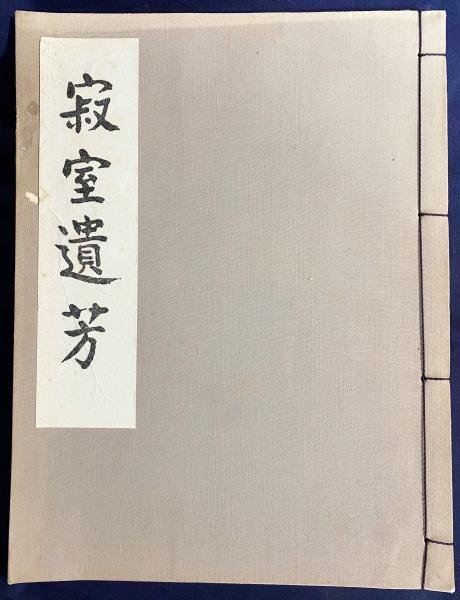 寂室遺芳